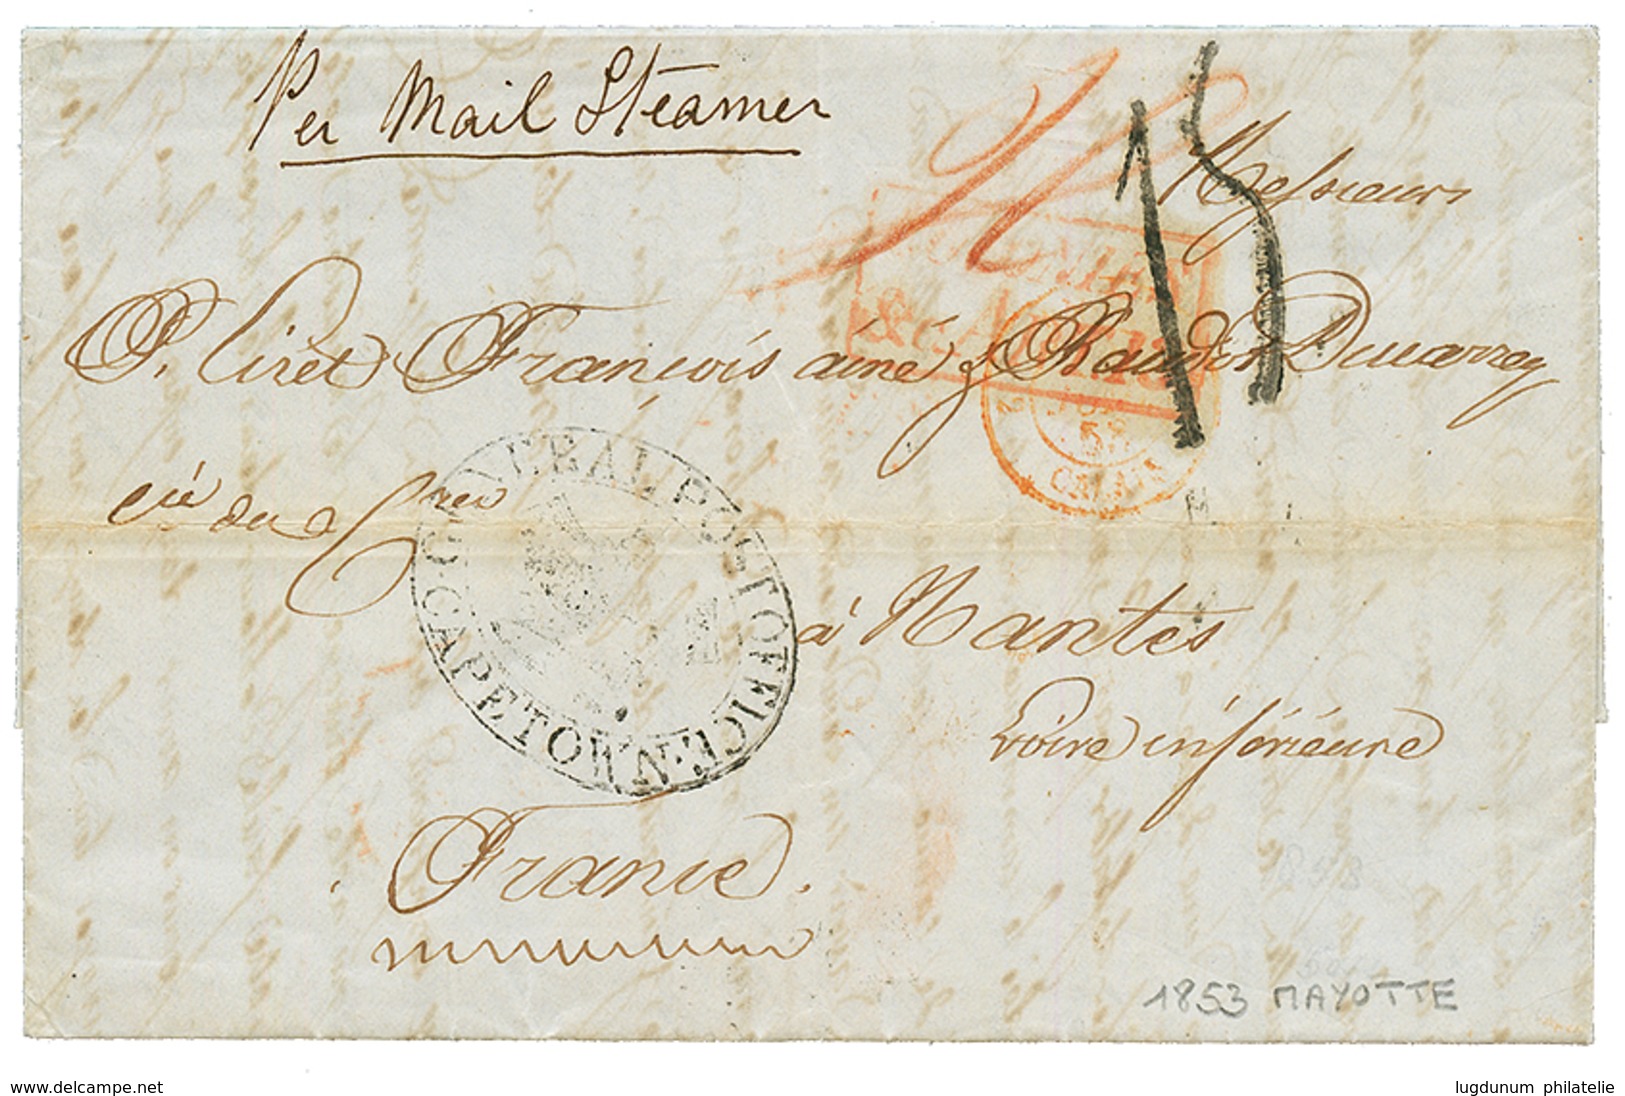 Per Mail Steamer
15
Messieurs
COLONIES
&c. ART. 13
P. Liret François ainé & Baudot Ducarrey
cie du
GENERAL POST OFFICE
CAPE TOWN
CALAIS
à Nantes
Loire inférieure
France.
1853 MAYOTTE
www.delcampe.net
lugdunum philatelie